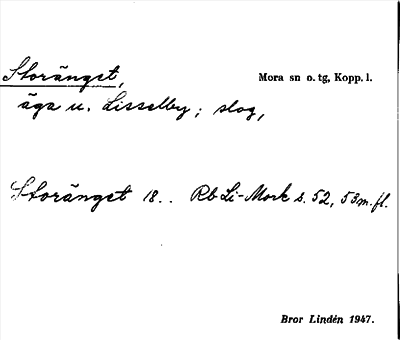 Storänget,
Mora sn o. tg, Kopp. l.
äga u. Lisselby; slog,
Storänget 18.. Rb Li-Mork s. 52, 53 m. fl.
Bror Lindén 1947.